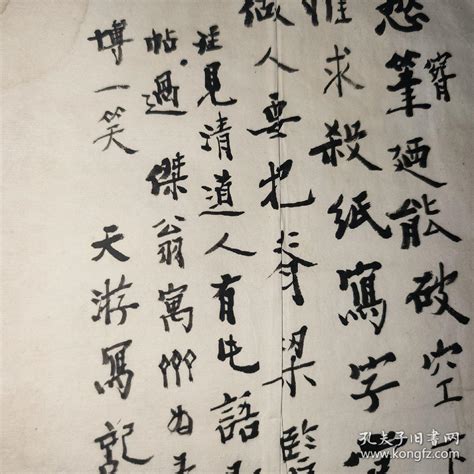 筆迺能破空
求殺紙寫字
做人要把脊梁豎
見清道人有此語
帖過傑翁寓為
博一笑 天游寫記
孔夫子旧书网
www.kongfz.com